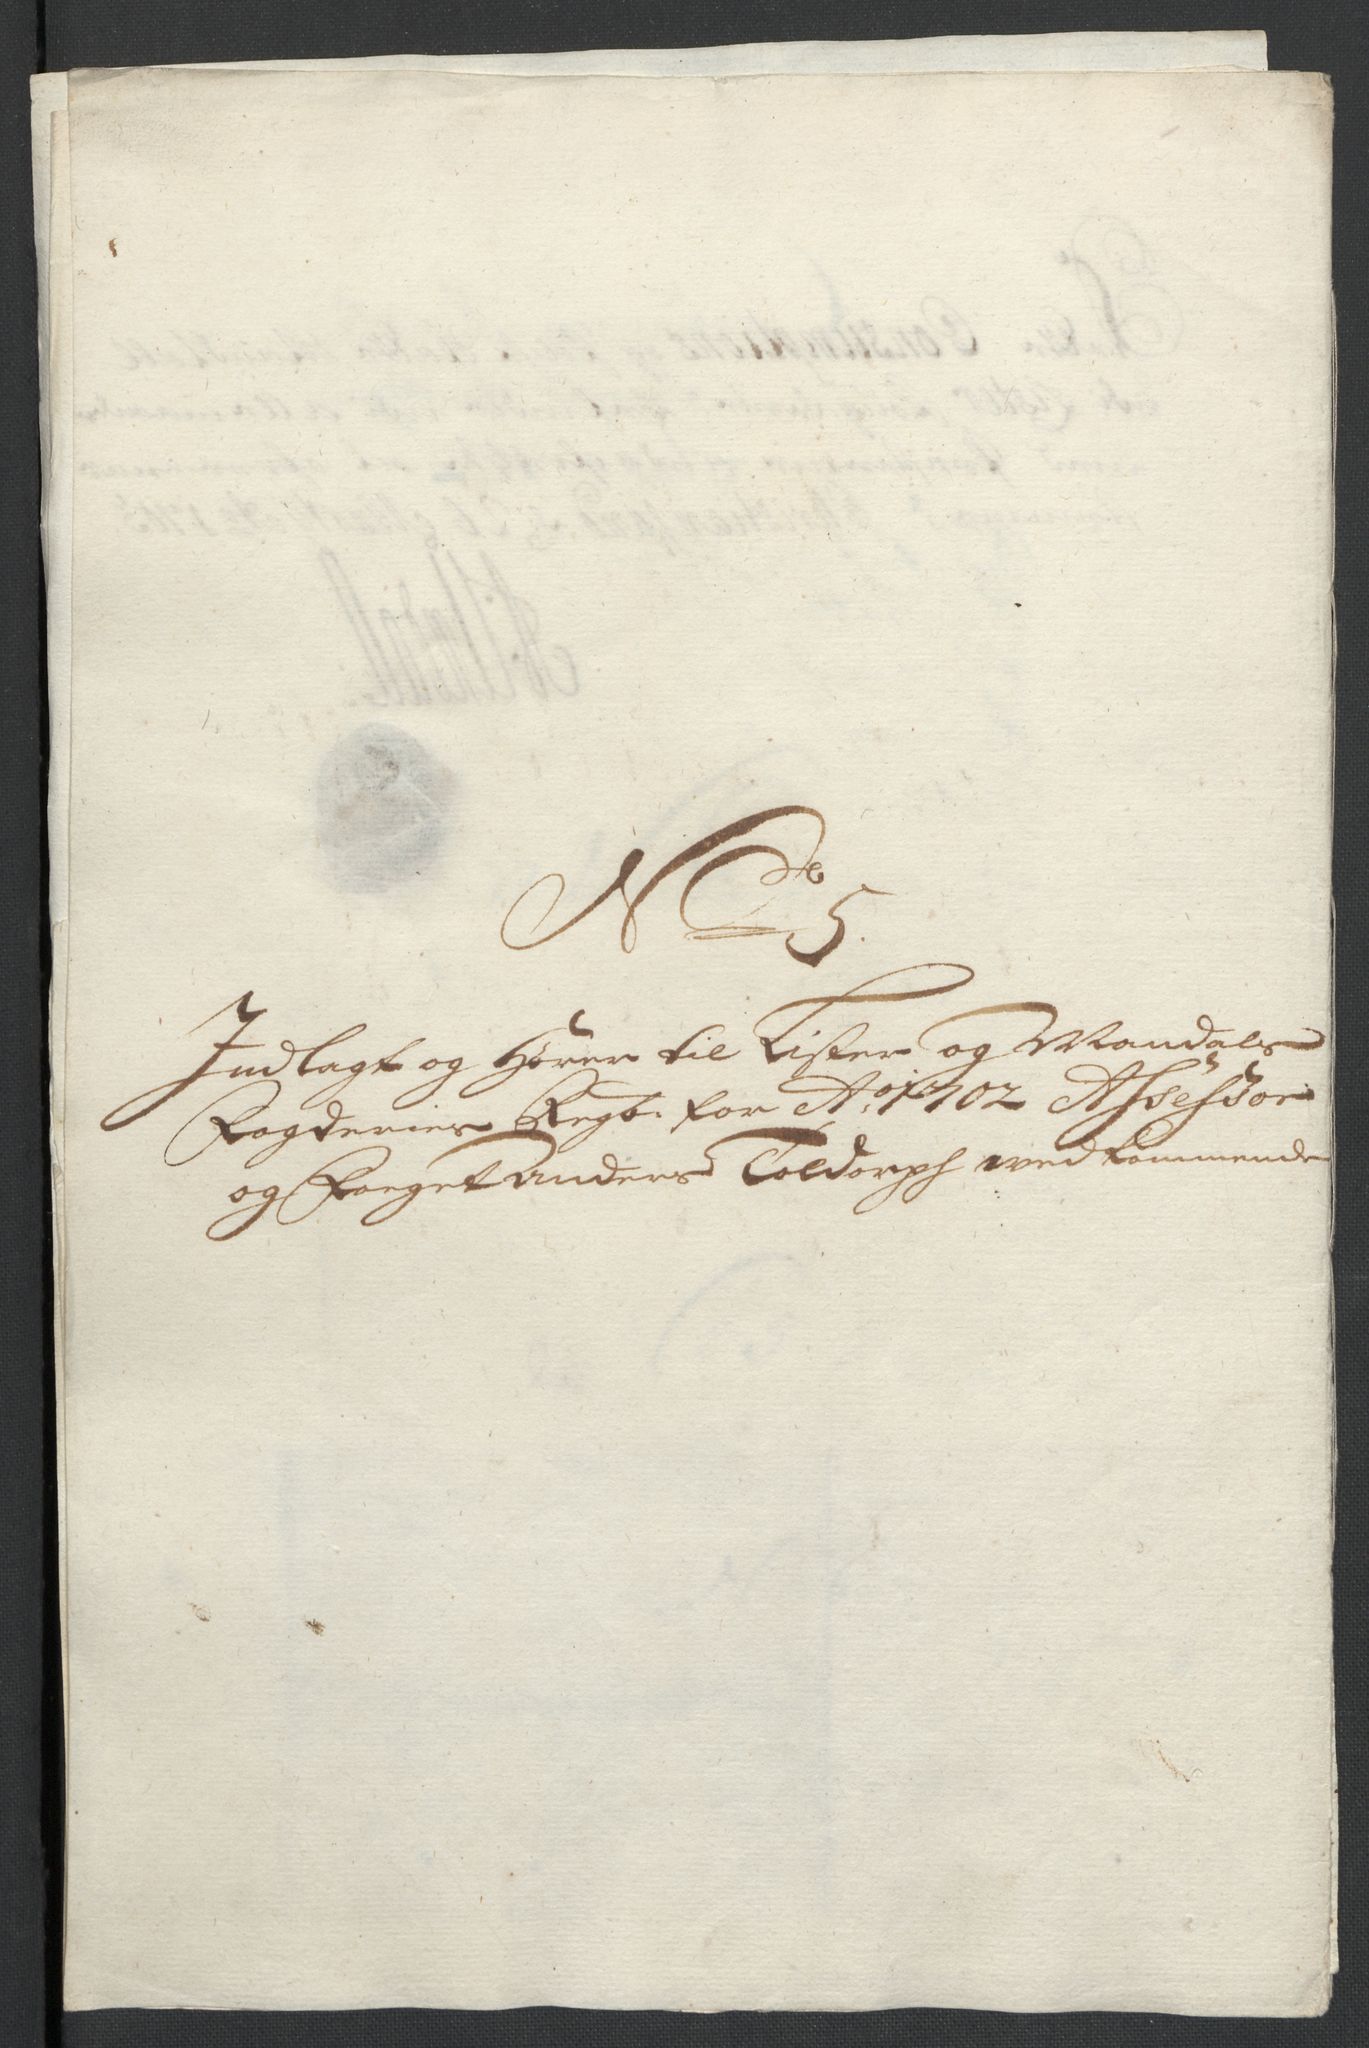 No 5.
Indlagt og Hører til Lister og Mandals
Fogderies Regb: for Ao 1702 Assessor
og Foeget Anders Toldorph vedkommende